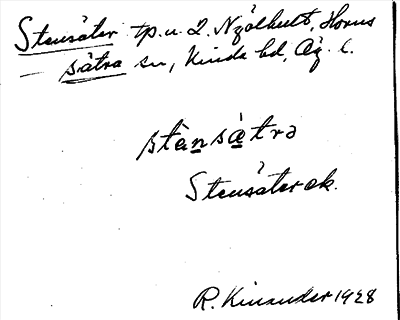 Stensäter tp. u. 2. Njölhult, Horns
— sätra sn, Kinda hd, Ög. l.
stànsæ̀trə
Stensäter ek.
R. Kinander 1928